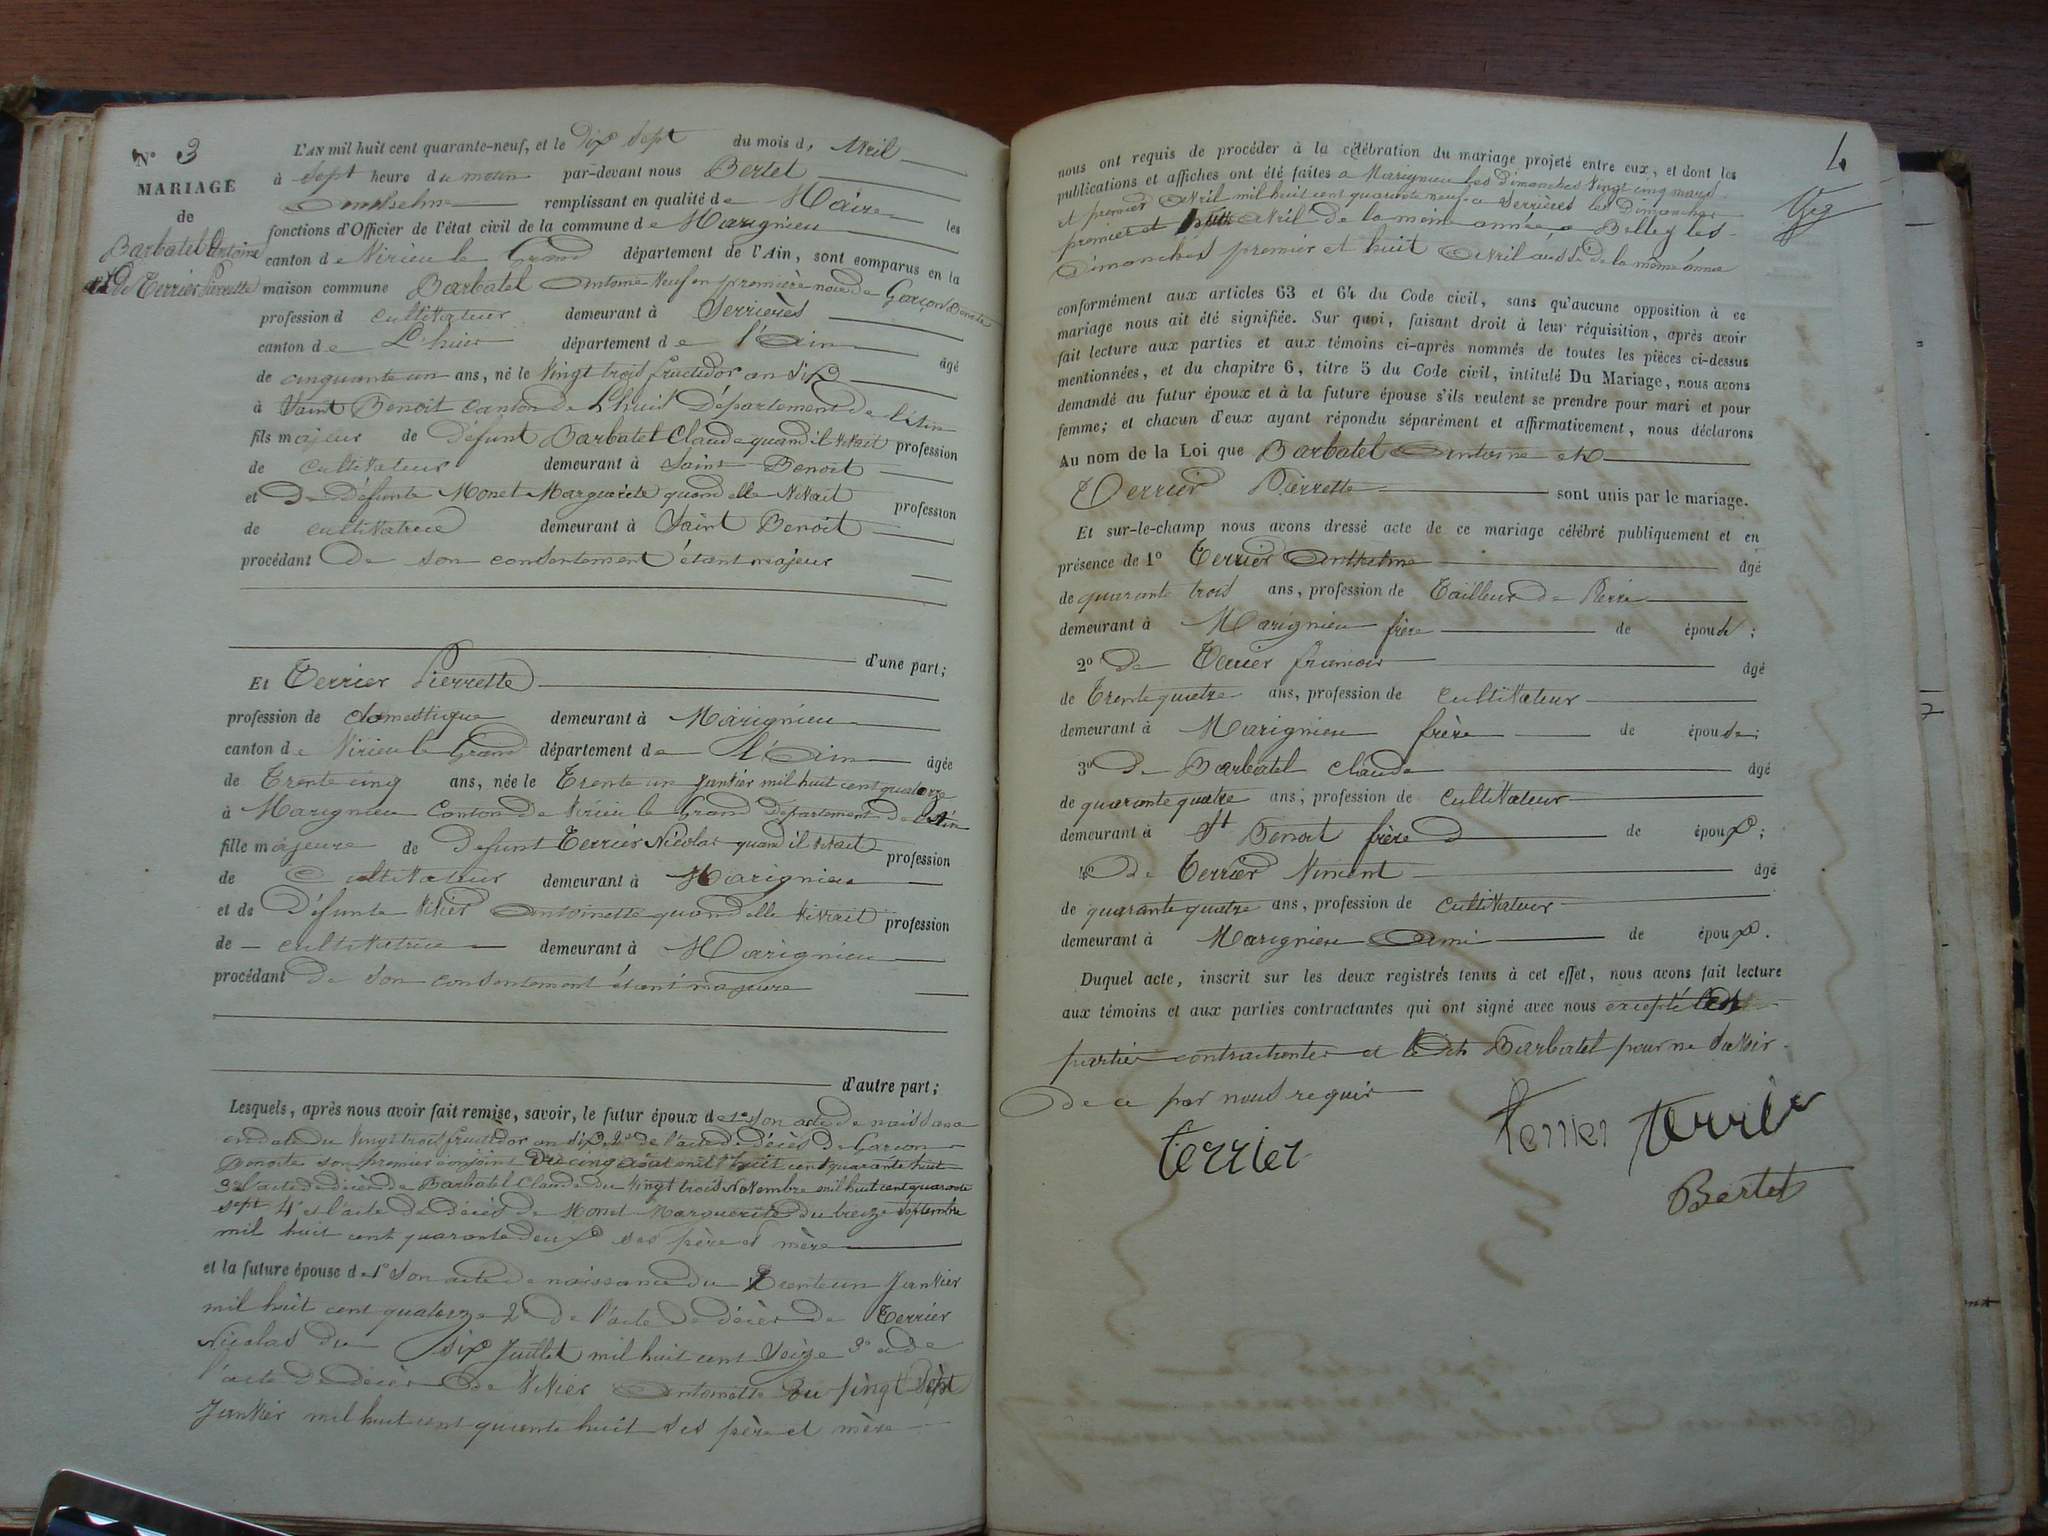 N° 3
MARIAGE
de
Barbatel Antoine
et de Terrier Pierrette
L'AN mil huit cent quarante-neuf, et le Dix Sept du mois d' Avril
à Sept heure du matin par-devant nous Bertet
Anthelme remplissant en qualité de Maire les
fonctions d'Officier de l'état civil de la commune de Marignieu
canton de Virieu le Grand département de l'Ain, sont comparus en la
maison commune Barbatel Antoine Veuf en première noce de Garçon Benoite
profession d cultivateur demeurant à Serrières
canton de L'huis département de l'Ain âgé
de cinquante un ans, né le Vingt trois fructidor an Six
à Saint Benoit Canton de Lhuis Département de l'Ain
fils majeur de Défunt Barbatel Claude quand il vivait profession
de cultivateur demeurant à Saint Benoit
et De Défunte Monet Marguerite quand elle vivait profession
de cultivatrice demeurant à Saint Benoit
procédant De son consentement étant majeur
d'une part;
Et Terrier Pierrette
profession de domestique demeurant à Marignieu
canton de Virieu le Grand département de l'Ain âgée
de Trente cinq ans, née le Trente un Janvier mil huit cent quatorze
à Marignieu Canton de Virieu le Grand Département de l'Ain
fille majeure de Defunt Terrier Nicolas quand il vivait profession
de Cultivateur demeurant à Marignieu
et de Défunte Vivier Antoinette quand elle vivait profession
de cultivatrice demeurant à Marignieu
procédant De son consentement étant majeure
d'autre part;
Lesquels, après nous avoir fait remise, savoir, le futur époux de 1° Son acte de naissance
en date du Vingt trois fructidor an Six 2° de l'acte de décès de Garçon
Benoite son premier conjoint Du cinq août mil huit cent quarante huit
3° l'acte de décès de Barbatel Claude du Vingt trois Novembre mil huit cent quarante
sept 4° l'acte de décès de Monet Marguerite du treize Septembre
mil huit cent quarante deux ses père et mère
et la future épouse de 1° Son acte de naissance du Trente un Janvier
mil huit cent quatorze 2° De l'acte De décès de Terrier
Nicolas du Six Juillet mil huit cent Seize 3° de
l'acte De décès De Vivier Antoinette Du Vingt Sept
Janvier mil huit cent quarante huit ses père et mère
4
nous ont requis de procéder à la célébration du mariage projeté entre eux, et dont les
publications et affiches ont été faites à Marignieu les dimanches Vingt cinq mars
et premier Avril mil huit cent quarante neuf à Serrières les Dimanches
premier et huit Avril de la même année à Belley les
Dimanches premier et huit Avril aussi de la même année
conformément aux articles 63 et 64 du Code civil, sans qu'aucune opposition à ce
mariage nous ait été signifiée. Sur quoi, faisant droit à leur réquisition, après avoir
fait lecture aux parties et aux témoins ci-après nommés de toutes les pièces ci-dessus
mentionnées, et du chapitre 6, titre 5 du Code civil, intitulé Du Mariage, nous avons
demandé au futur époux et à la future épouse s'ils veulent se prendre pour mari et pour
femme; et chacun d'eux ayant répondu séparément et affirmativement, nous déclarons
Au nom de la Loi que Barbatel Antoine et
Terrier Pierrette sont unis par le mariage.
Et sur-le-champ nous avons dressé acte de ce mariage célébré publiquement et en
présence de 1° Terrier Anthelme âgé
de quarante trois ans, profession de Tailleur de Pierre
demeurant à Marignieu frère de épouse;
2° De Terrier âgé
de Trente quatre ans, profession de cultivateur
demeurant à Marignieu frère de épouse;
3° De Barbatel Claude âgé
de quarante quatre ans, profession de cultivateur
demeurant à St Benoit frère de époux;
4° De Terrier Vincent âgé
de quarante quatre ans, profession de cultivateur
demeurant à Marignieu Ami de époux.
Duquel acte, inscrit sur les deux registres tenus à cet effet, nous avons fait lecture
aux témoins et aux parties contractantes qui ont signé avec nous excepté les
parties contractantes et le dit Barbatel pour ne savoir
De ce par nous requis
Terrier Terrier Terrier
Bertet